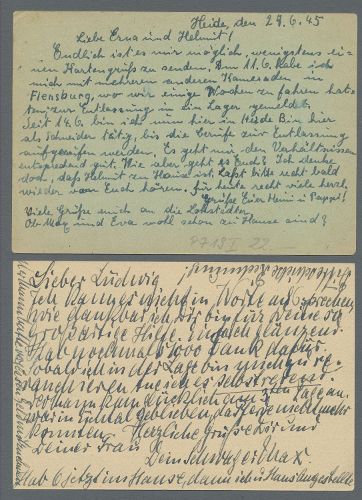 Heide, den 29.6.45
Liebe Erna und Helmut!
Endlich ist es mir möglich, wenigstens ei-
nen Kartengruß zu senden. Am 11.6. habe ich
mich mit mehreren anderen Kameraden in
Flensburg, wo wir einige Wochen zu fahren hat-
ten zur Entlassung in ein Lager gemeldet.
Seit 14.6. bin ich nun hier in Heide. Bin hier
als Schneider tätig, bis die Berufe zur Entlassung
aufgerufen werden. Es geht mir den Verhältnissen
entsprechend gut. Wie aber geht es Euch? Ich denke
doch, daß Helmut zu Hause ist. Laßt bitte recht bald
wieder von Euch hören. Für heute recht viele herzl.
Grüße Euer Heini u. Pappi!
Viele Grüße auch an die Lokstedter.
Ob Max und Eva wohl schon zu Hause sind?
Lieber Ludwig
Ich kann es nicht in Worte aussprechen,
wie dankbar ich Dir bin für Deine so
großartige Hilfe. Einfach glänzend
Hab nochmals 1000 Dank dafür.
Sobald ich in der Lage bin mich zu re-
vanchieren tue ich es selbstredend.
kam glücklich am
war in geblieben, da sie nicht mehr
konnten. Herzliche Grüße Dir und
Deiner Frau
Dein Schwager Max
Hab 6 jetzt im Hause, dann ich u Hausangestellte